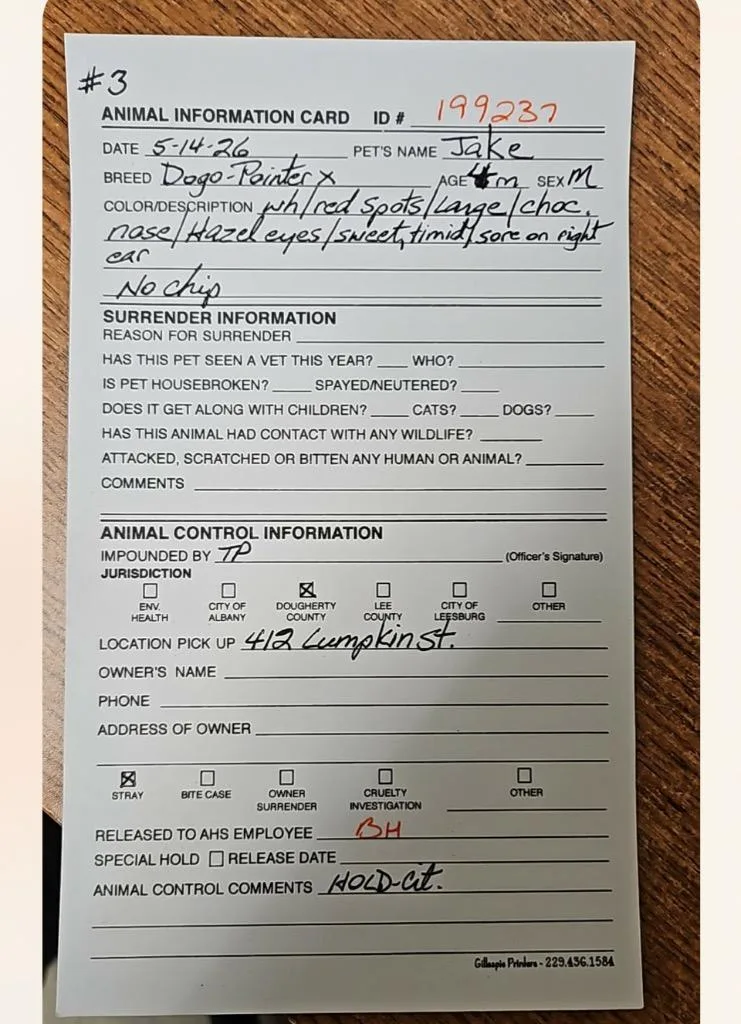 #3
ANIMAL INFORMATION CARD ID # 199237
DATE 5-14-26 PET'S NAME Jake
BREED Dogo-Pointer x AGE 4m SEX M
COLOR/DESCRIPTION wh/red spots/Large/choc.
nose/Hazel eyes/sweet, timid/sore on right
ear
No chip
SURRENDER INFORMATION
REASON FOR SURRENDER
HAS THIS PET SEEN A VET THIS YEAR? WHO?
IS PET HOUSEBROKEN? SPAYED/NEUTERED?
DOES IT GET ALONG WITH CHILDREN? CATS? DOGS?
HAS THIS ANIMAL HAD CONTACT WITH ANY WILDLIFE?
ATTACKED, SCRATCHED OR BITTEN ANY HUMAN OR ANIMAL?
COMMENTS
ANIMAL CONTROL INFORMATION
IMPOUNDED BY TP (Officer's Signature)
JURISDICTION
ENV. HEALTH CITY OF ALBANY DOUGHERTY COUNTY LEE COUNTY CITY OF LEESBURG OTHER
LOCATION PICK UP 412 Lumpkin St.
OWNER'S NAME
PHONE
ADDRESS OF OWNER
STRAY BITE CASE OWNER SURRENDER CRUELTY INVESTIGATION OTHER
RELEASED TO AHS EMPLOYEE BH
SPECIAL HOLD RELEASE DATE
ANIMAL CONTROL COMMENTS HOLD-Cit.
Gillespie Printers - 229.436.1584